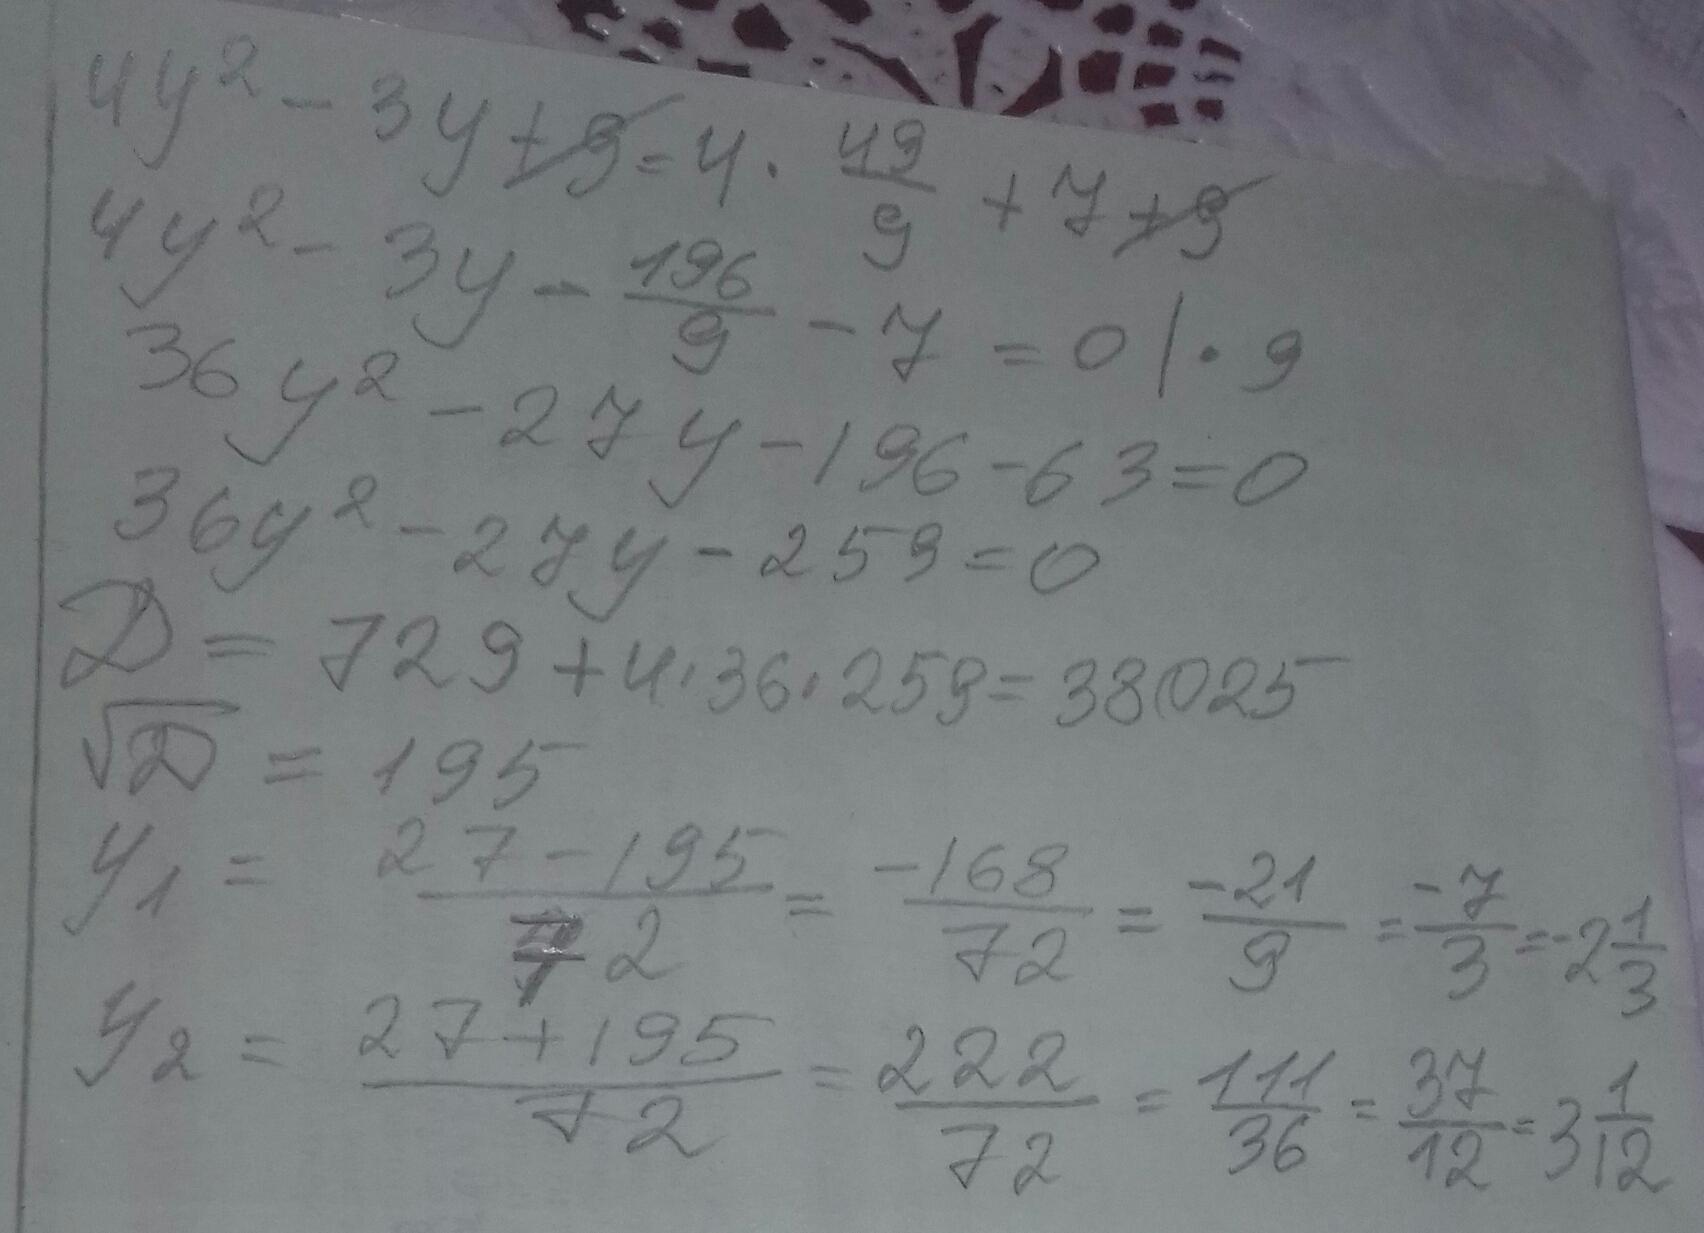 4y² - 3y + 9 = 4 · 49/9 + 7 + 9
4y² - 3y - 196/9 - 7 = 0 | · 9
36y² - 27y - 196 - 63 = 0
36y² - 27y - 259 = 0
D = 729 + 4 · 36 · 259 = 38025
√D = 195
y₁ = (27 - 195)/72 = -168/72 = -21/9 = -7/3 = -2 1/3
y₂ = (27 + 195)/72 = 222/72 = 111/36 = 37/12 = 3 1/12